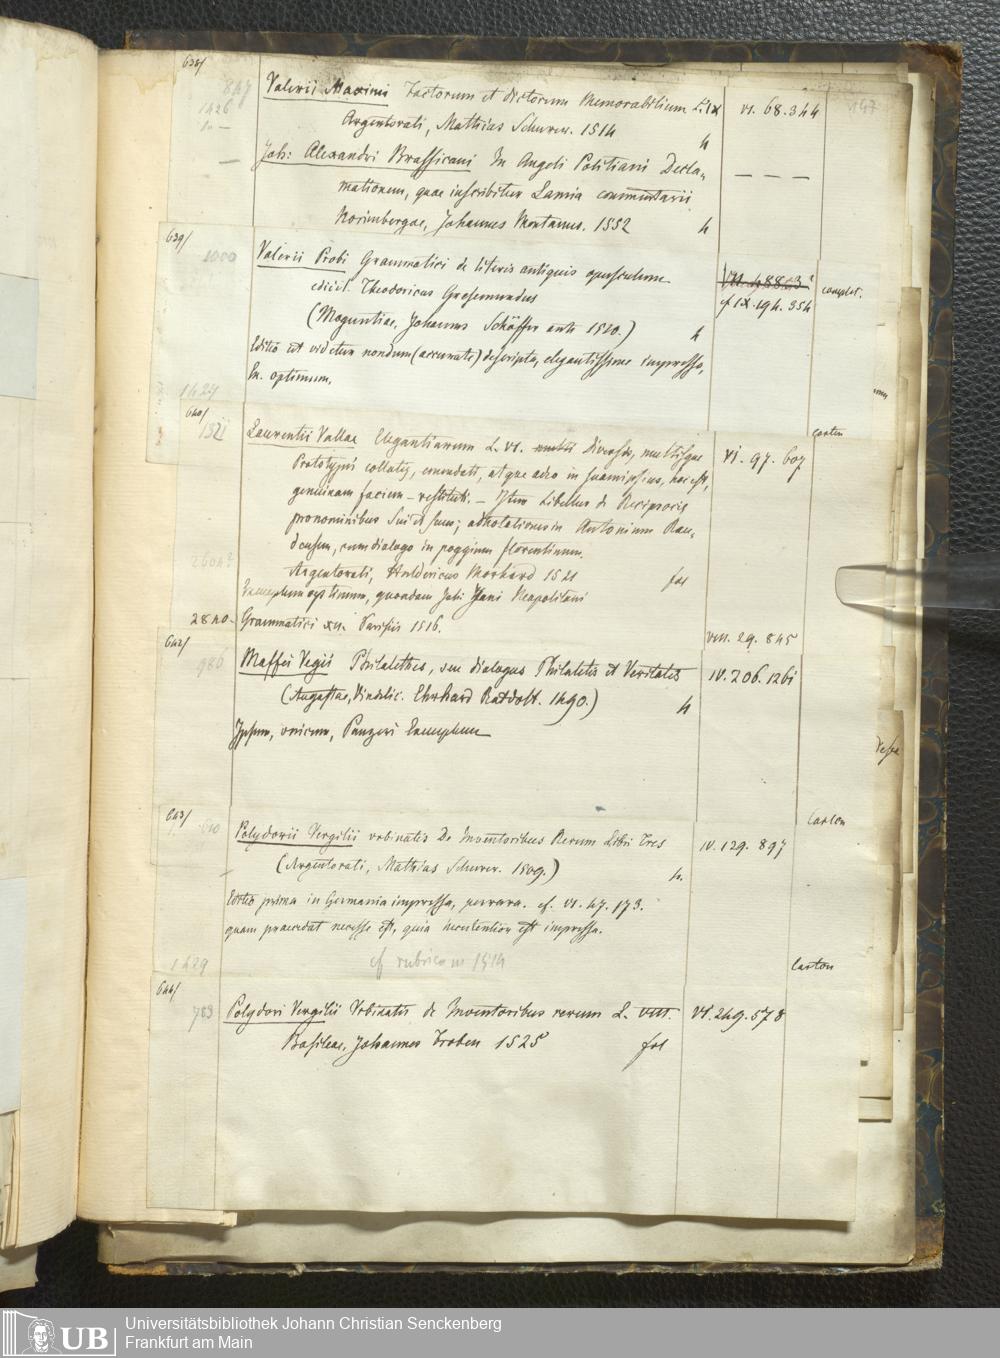 638/
847
1426
147
Valerii Maximi Factorum et dictorum Memorabilium L. IX VI. 68. 344
Argentorati, Mathias Schurer. 1514 4
Joh: Alexandri Brassicani In Angeli Politiani Decla- — — —
mationem, quae inscribitur Lamia commentarii
Norimbergae, Johannes Montanus. 1552 4
639/
1000
Valerii Probi Grammatici de literis antiquis opusculum
edidit. Theodoricus Gresemundus cf IX. 194. 354 complet.
(Moguntiae, Johannes Schöffer 1510.) 4
Editio ut videtur nondum (accurate) descripta, elegantissime impressa,
Ex. optimum.
1424
640/
1321
Laurentii Vallae Elegantiarum L. VI. diversis, multisque VI. 97. 607
Prototypis collatis, emendati, atque adeo in
genuinam faciem restituti. – Item Libellus de Reciprocis
pronominibus Sui et suus; adnotationes in Antonium Rau-
densem, cum dialogo in poggium florentinum.
Argentorati, Huldericus Morhard 1521 fol
Exemplum optimum, quondam Jani Neapolitani
2840. Grammatici XII. Parisiis 1516. VIII. 29. 845
642/
986
Maffei Vegii Philalethes, seu dialogus Philaletis et Veritatis IV. 206. 1261
(Augustae, Vindelic. Ehrhard Ratdolt. 1490.) 4
Ipsum, unicum, Panzeri Exemplum
643/
Carton
Polydorii Vergilii urbinatis De Inventoribus Rerum Libri Tres IV. 129. 897
(Argentorati, Mathias Schurer. 1509.) 4.
Editio prima in Germania impressa, perrara. cf. VI. 47. 173.
quam praecedat necesse est, quia est impressa.
cf rubricam 1514
1429
Carton
644/
789
Polydori Vergilii Urbinatis de Inventoribus rerum L. VIII. VI. 249. 578
Basileae, Johannes Froben 1525 fol
UB
Universitätsbibliothek Johann Christian Senckenberg
Frankfurt am Main